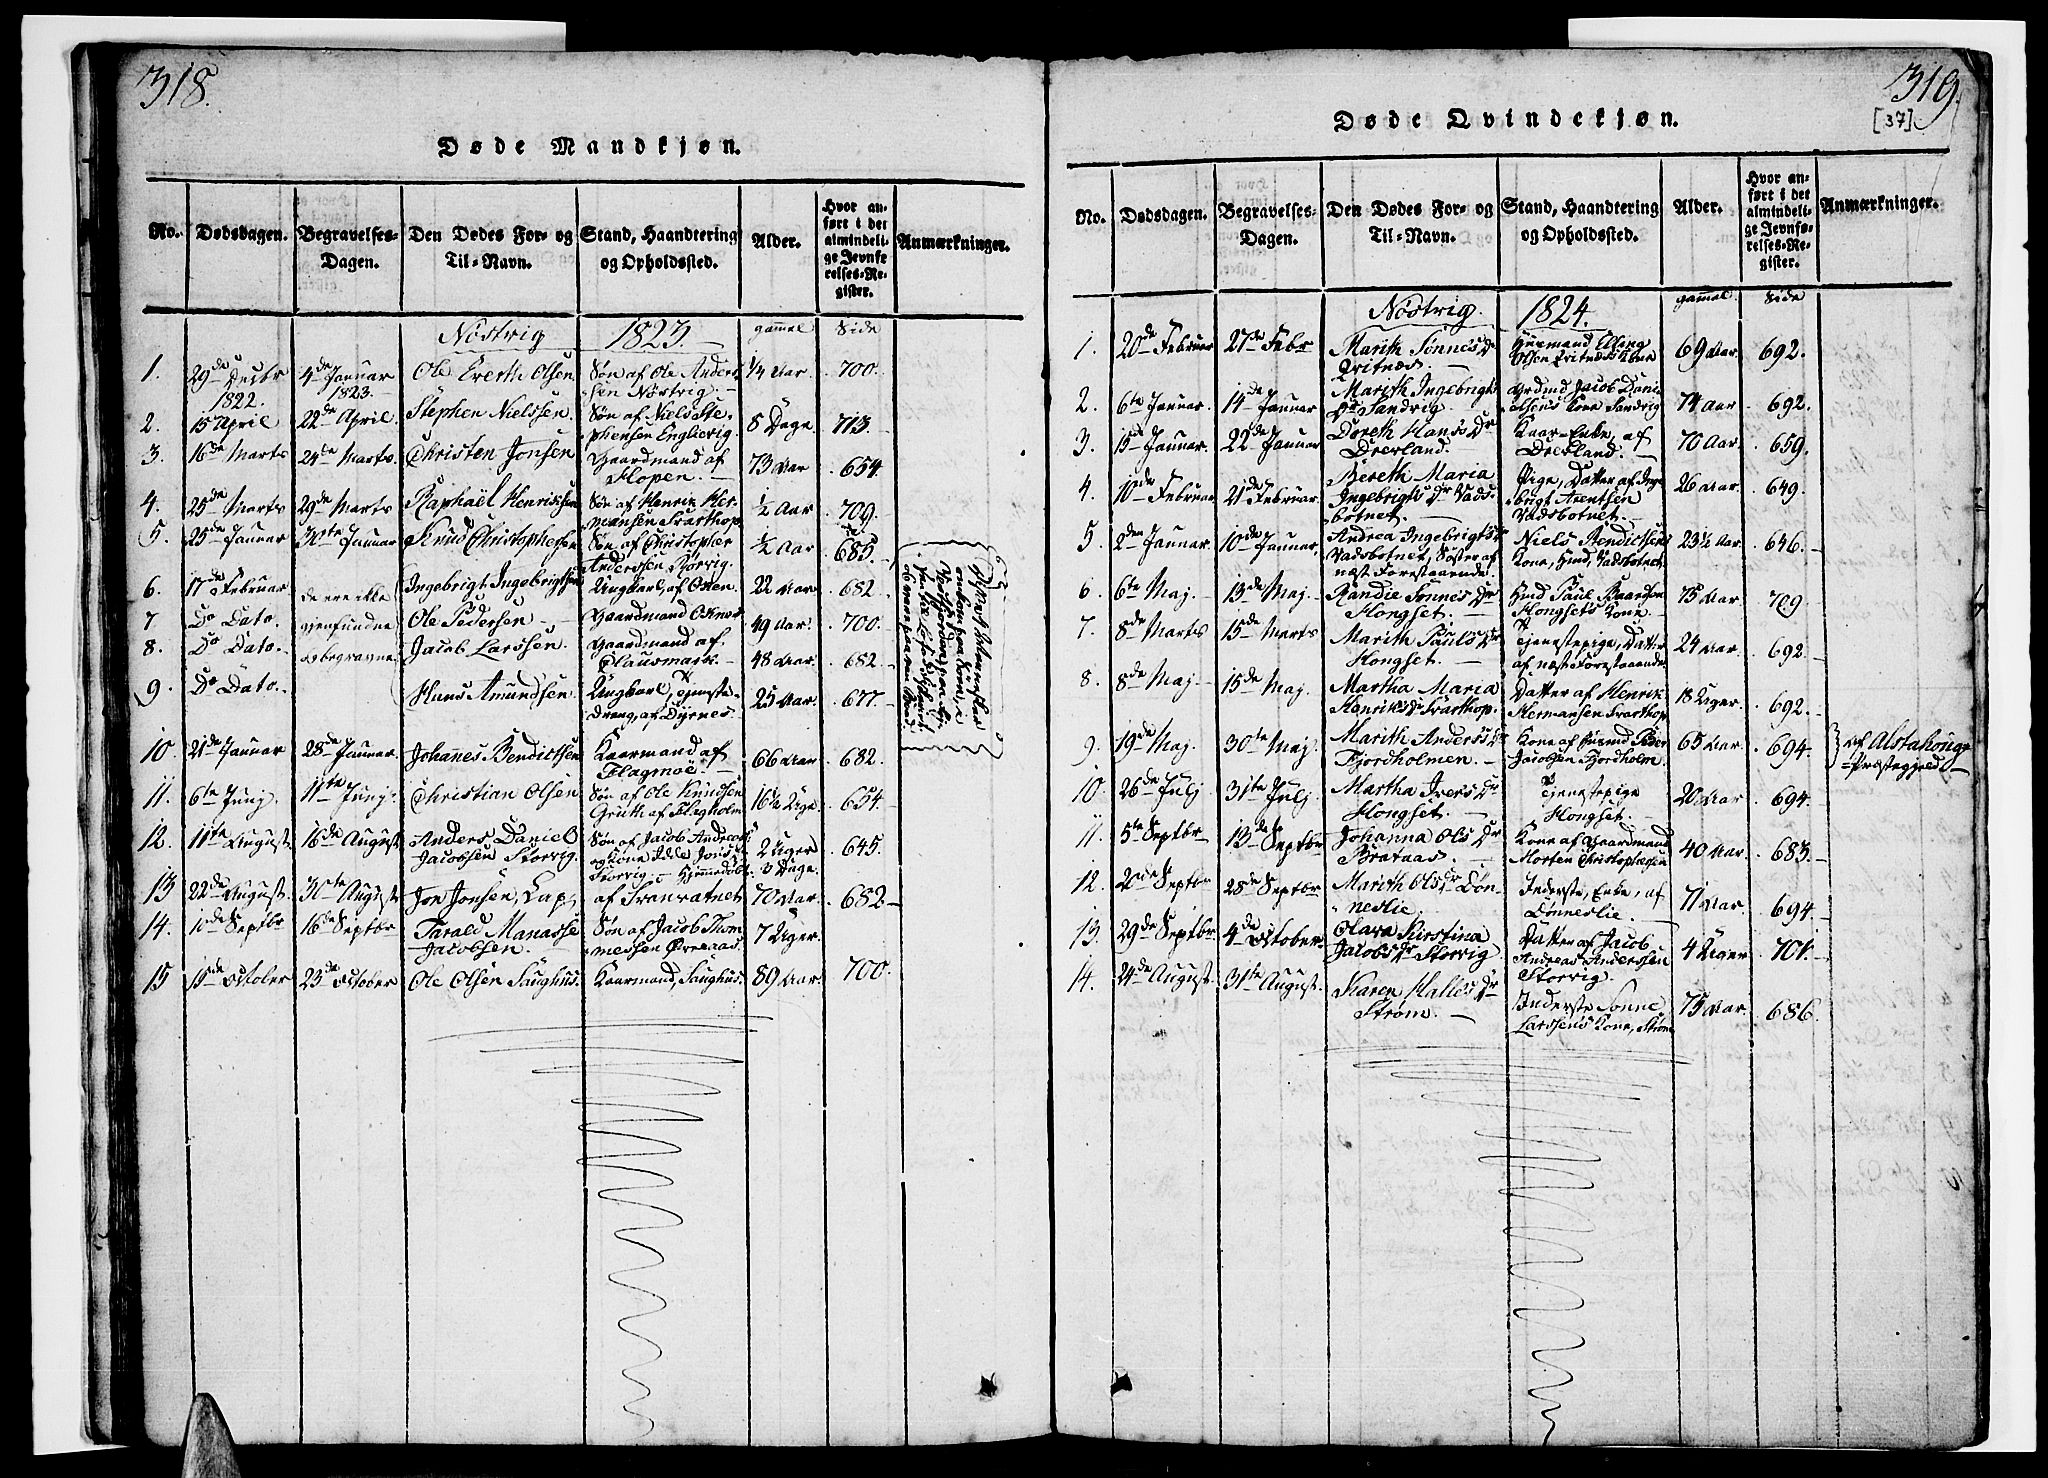 318.
Døde Mandkjøn.
No. Dødsdagen. Begravelses-Dagen. Den Dødes For- og Til-Navn. Stand, Haandtering og Opholdssted. Alder. Hvor anført i det almindelige Jevnførelses-Register. Anmærkninger.
Nöstvig 1823. gammel Side
1. 29de Decbr 1822. 4de Januar 1823. Ole Evert Olsen Søn af Ole Andersen Nöstvig. 1/4 Aar. 700.
2. 15 April 22de April. Stephen Nielsen. Søn af Niels Stephensen 8 Dage 713
3. 16de Marts 24de Marts. Christen Jonsen Gaardmand af Hopen. 73 Aar 654
4. 25de Marts 29de Marts Raphaël Henrichsen Søn af Henrik Hermansen Svarthop. 1/2 Aar 709.
5. 25de Januar 30te Januar Knud Christophersen Søn af Christopher Anderssen 1/2 Aar 685.
6. 17de Februar de ere ikke Ingebrigt Ingebrigtsen Ungkarl, af Oxen. 22 Aar 682.
7. Do Dato. gjenfundne Ole Pedersen Gaardmand 49 Aar 700.
8. Do Dato. begravne Jacob Larssen. Gaardmand af 48 Aar. 682
9. Do Dato. Hans Amundsen. Ungkarl, Tjenestedreng, af Dyrnes. 25 Aar. 677.
10. 21de Januar 28de Januar. Johannes Bendictsen Kaarmand af Flagmoe. 66 Aar 682.
11. 6te Junj 11te Junj. Christian Olsen Søn af Ole Knudsen 16 Uge 654.
12. 11te August 16de August Anders Daniel Jacobsen Storvig. Søn af Jacob Storvig. 2 Uger 3 Dage. 645.
13 22de August 30te August Jon Jonsen, Lap, af Svanvatnet 70 Aar. 682
14. 10de Septbr 16de Septbr Tarald Manasse Jacobsen. Søn af Jacob Thommessen 7 Uger.
15 15de October 23de October Ole Olsen Saughus. Kaarmand, Saughus. 89 Aar 700.
319.
[37]
Døde Qvindekjøn.
No. Dødsdagen. Begravelses-Dagen. Den Dødes For- og Til-Navn. Stand, Haandtering og Opholdssted. Alder. Hvor anført i det almindelige Jevnførelses-Register. Anmærkninger.
Nöstvig 1824. gammel. Side
1. 20de Februar 27de Febr Marith Sønnes Dr Qvitnes. Huusmand Olsen Qvitnes's Kone 69 Aar 692.
2. 6te Januar. 14de Januar Marith Ingebrigts Dr Sandvig Jacob Danielsens Kone Sandvig 74 Aar 692.
3. 15de Januar. 22de Januar Doreth Hans Dr Kaar-Enke, af 70 Aar. 659.
4. 10de Februar 21de Februar. Bereth Maria Ingebrigts Dr Vadsbotnet. Pige, Datter af Ingebrigt Arentsen Vadsbotnet. 26 Aar. 649.
5. 2den Januar. 10de Januar. Andrea Ingebrigts Dr Vadsbotnet, Søster af næst Forestaaende. Niels Bendictsens Kone, Vadsbotnet 23 1/2 Aar. 646.
6. 6te Maj. 13de Maj. Randie Sønnes Dr Hongset. Paul Baardsen Hongsets Kone. 75 Aar 709.
7. 8de Marts 15de Marts Marith Pauls Dr Hongset. Tjenestepige, Datter af næst Forestaaende 24 Aar. 692.
8. 8de Maj 15de Maj. Martha Maria Henriks Dr Svarthop. Datter af Henrik Hermansen Svarthop. 18 Uger. 692.
9. 19de Maj. 30te Maj. Marith Anders Dr Fjordholmen. Kone af Peder Jacobsen Fjordholm. 65 Aar 694 af Alstahoug Præstegjeld
10. 26de Julj 31te Julj. Martha Ivers Dr Hongset. Tjenestepige Hongset. 20 Aar 694.
11. 5te Septbr 13de Septbr Johanna Ols Dr Brataas. Kone af Gaardmand Morten Christophersen 40 Aar 683.
12. 20de Septbr 28de Septbr Marith Ols Dr Dønneslie. Inderste, Enke, af Dønneslie. 71 Aar. 694.
13. 29de Septbr. 4de October. Olava Kirstina Jacobs Dr Storvig. Datter af Jacob Andreas Anderssen Storvig 4 Uger 701.
14. 24de August. 31te August. Karen Halles Dr Strøm. Inderste Sønne Larssens Kone, Strøm 75 Aar 686.